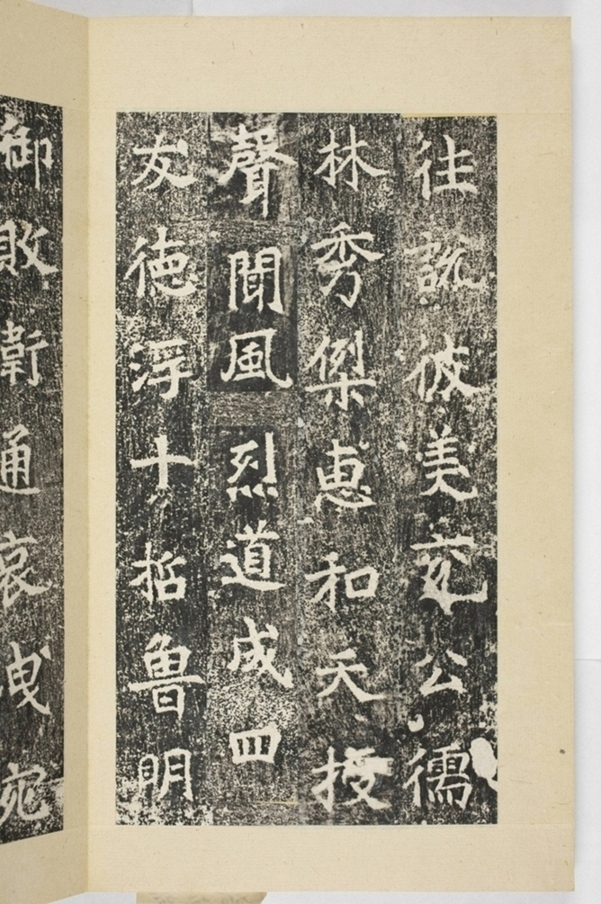 往訛彼美兗公儒
林秀傑惠和天授
聲聞風烈道成四
友德浮十哲魯明
御敗衛通哀洩宛